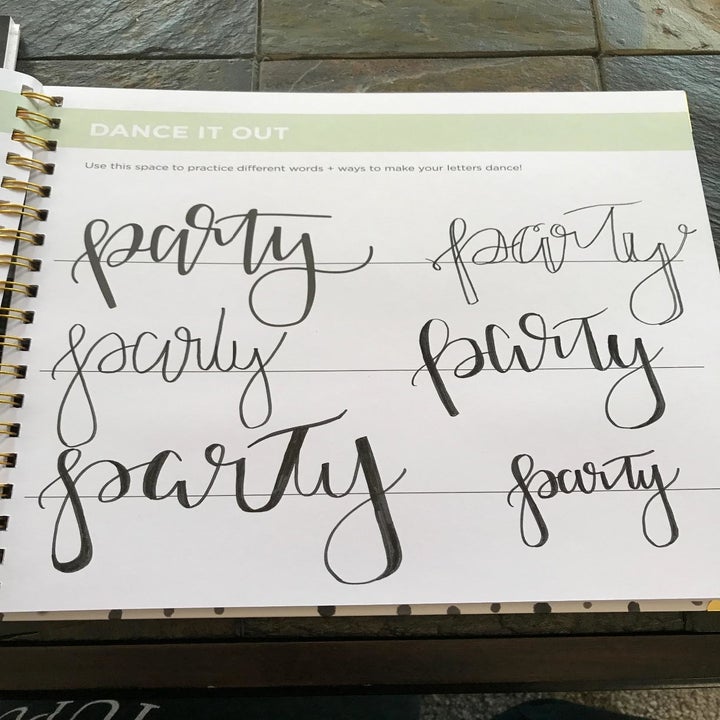 DANCE IT OUT
Use this space to practice different words + ways to make your letters dance!
party party
party party
party party